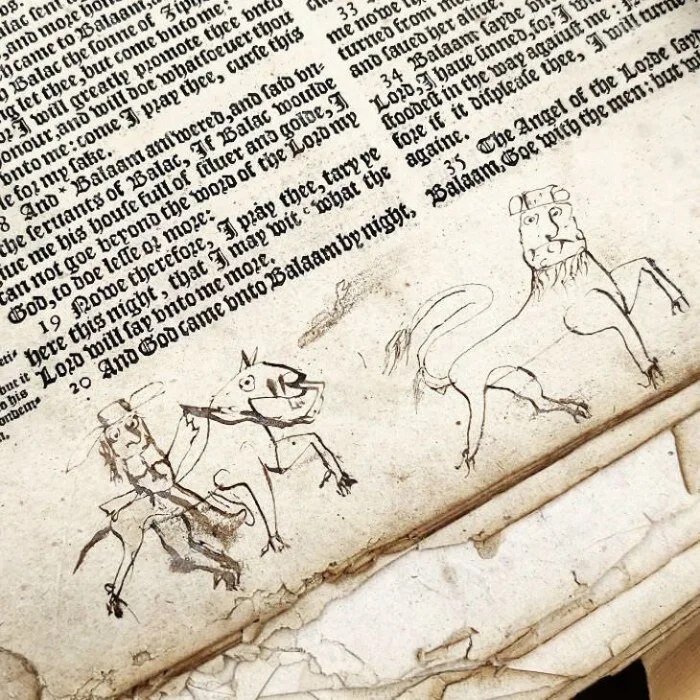 lac sent
and more hono
came to Balaam
Balac the sonne of Ziph
ng let thee, but come vnto me:
or I will greatly promote thee vnto
onour, and will doe whatsoeuer thou
vnto me: come I pray thee, curse this
le for my sake.
And * Balaam answered, and said vn-
the seruants of Balac, If Balac woulde
iue me his house full of siluer and golde, I
can not goe beyond the word of the Lord my
God, to doe lesse or more:
19 Nowe therefore, I pray thee, tary ye
here this night, that I may wit what the
Lord will say vnto me more.
20 And God came vnto Balaam by night,
but it
his
33
me nowe
turned from me
and saued her aliue.
34 Balaam sayde vn
Lord, I haue sinned, for I w
stoodest in the way against me:
fore if it displease thee, I will turne
againe.
35 The Angel of the Lorde said
Balaam, Goe with the men: but wh